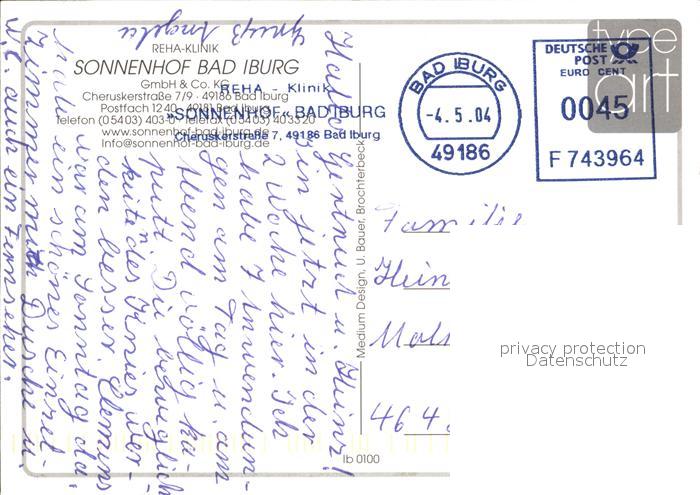 type
art
REHA-KLINIK
SONNENHOF BAD IBURG
GmbH & Co. KG
Cheruskerstraße 7/9 · 49186 Bad Iburg
Postfach 1240 · 49181 Bad Iburg
Telefon (05403) 403-0 · Telefax (05403) 403520
www.sonnenhof-bad-iburg.de
Info@sonnenhof-bad-iburg.de
REHA - Klinik
»SONNENHOF« BAD IBURG
Cheruskerstraße 7, 49186 Bad Iburg
BAD IBURG
-4. 5. 04
49186
DEUTSCHE
POST
EURO CENT
0045
F 743964
Hallo Gertrud u. Heinz!
Bin jetzt in der
2 Woche hier. Ich
habe 7 Anwendun-
gen am Tag u. am
Abend völlig ka-
putt. Die beweglich
keit des Knies wer-
den besser. Clemens
war am Sonntag da.
Habe ein schönes Einzel-
zimmer mit Dusche u.
W.C. auch ein Fernseher.
Gruß Angela
Medium Design, U. Bauer, Brochterbeck
Familie
Hein
Mols
46 4
privacy protection
Datenschutz
Ib 0100